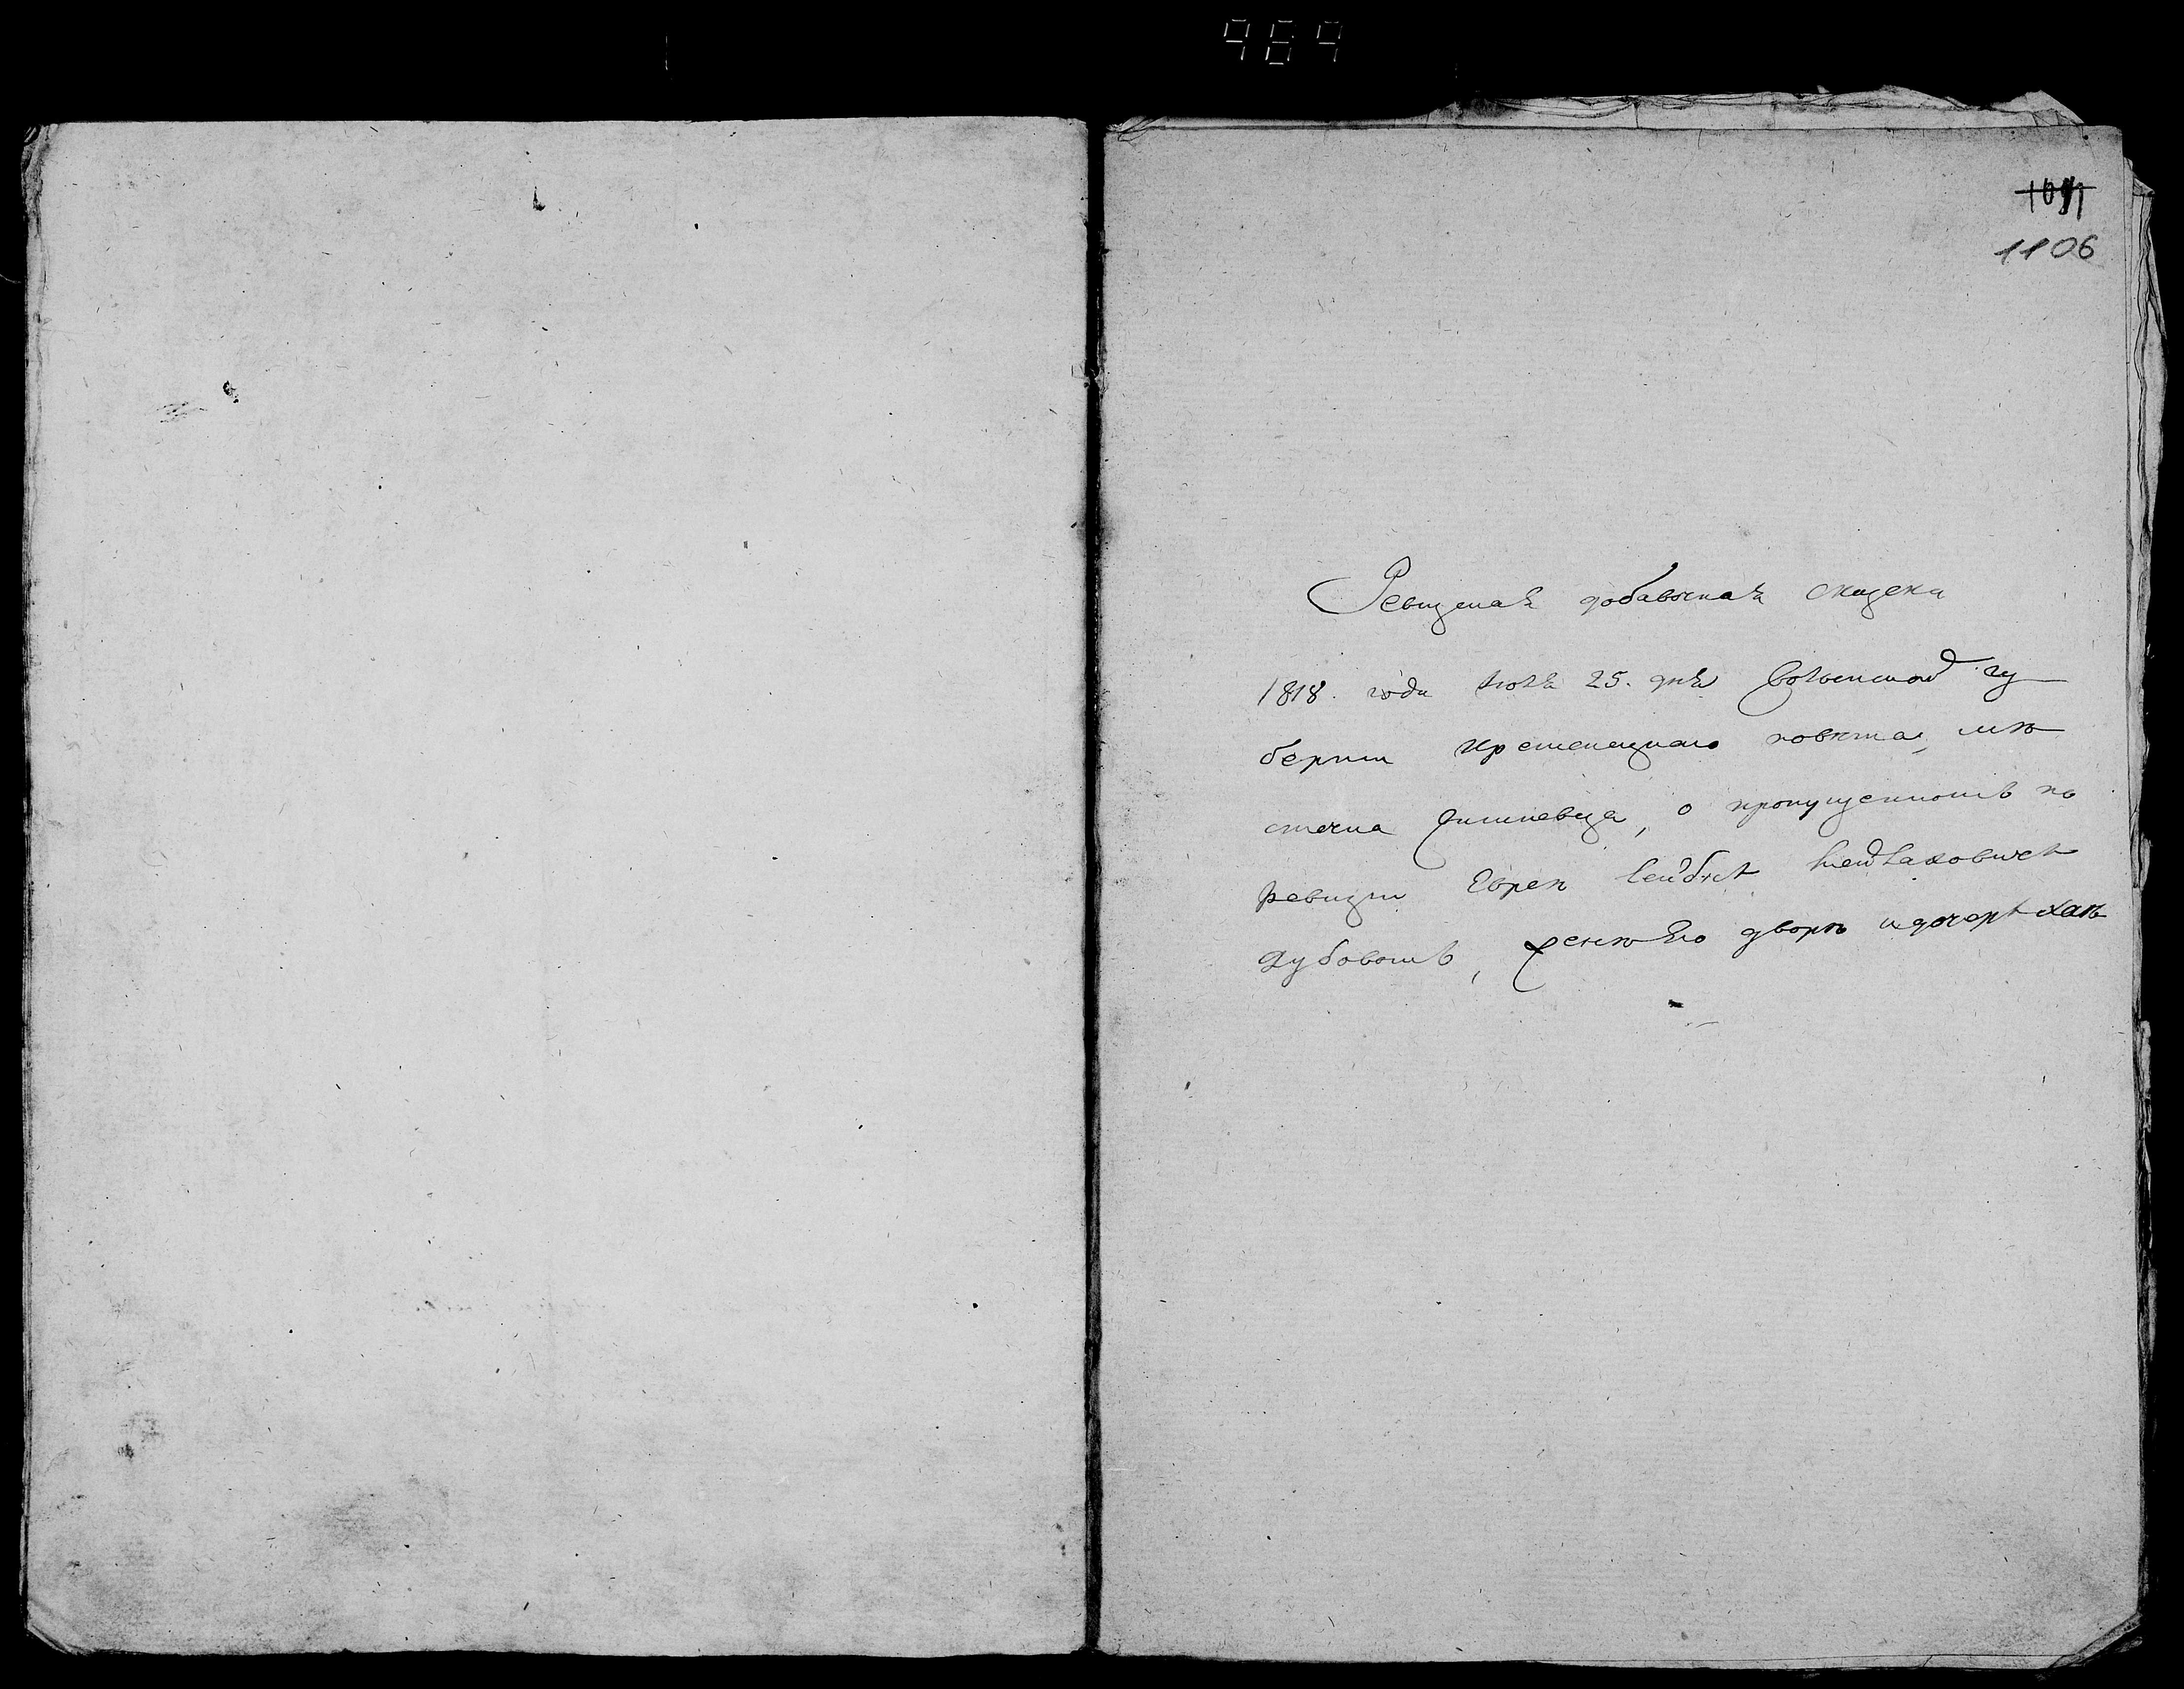 464
1091
1106
Ревизская добавочная сказка
1818. года июля 25. дня Волынской гу
бернии Кременецкаго повета, ме
стечка Вишневца, о пропущенномъ по
ревизии Еврея Лейбы
Дубовомъ, жене его Дворе и дочери Хае